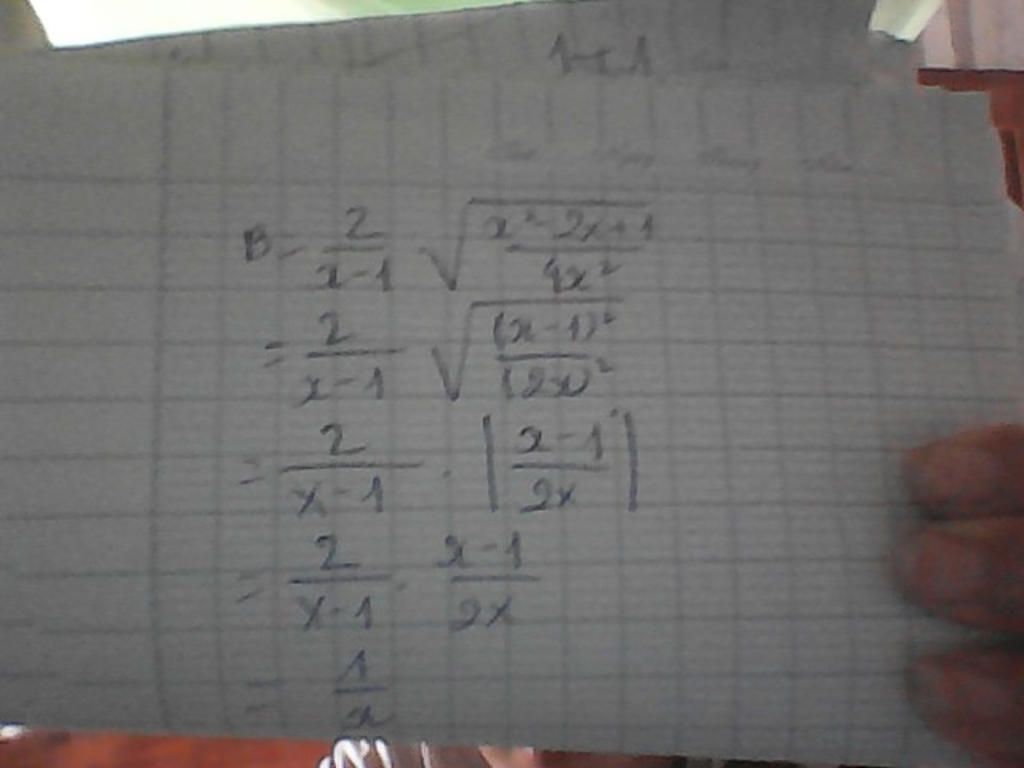 1+1
B = \frac{2}{x-1} \sqrt{\frac{x^2-2x+1}{4x^2}}
= \frac{2}{x-1} \sqrt{\frac{(x-1)^2}{(2x)^2}}
= \frac{2}{x-1} \cdot \left|\frac{x-1}{2x}\right|
= \frac{2}{x-1} \cdot \frac{x-1}{2x}
= \frac{1}{x}